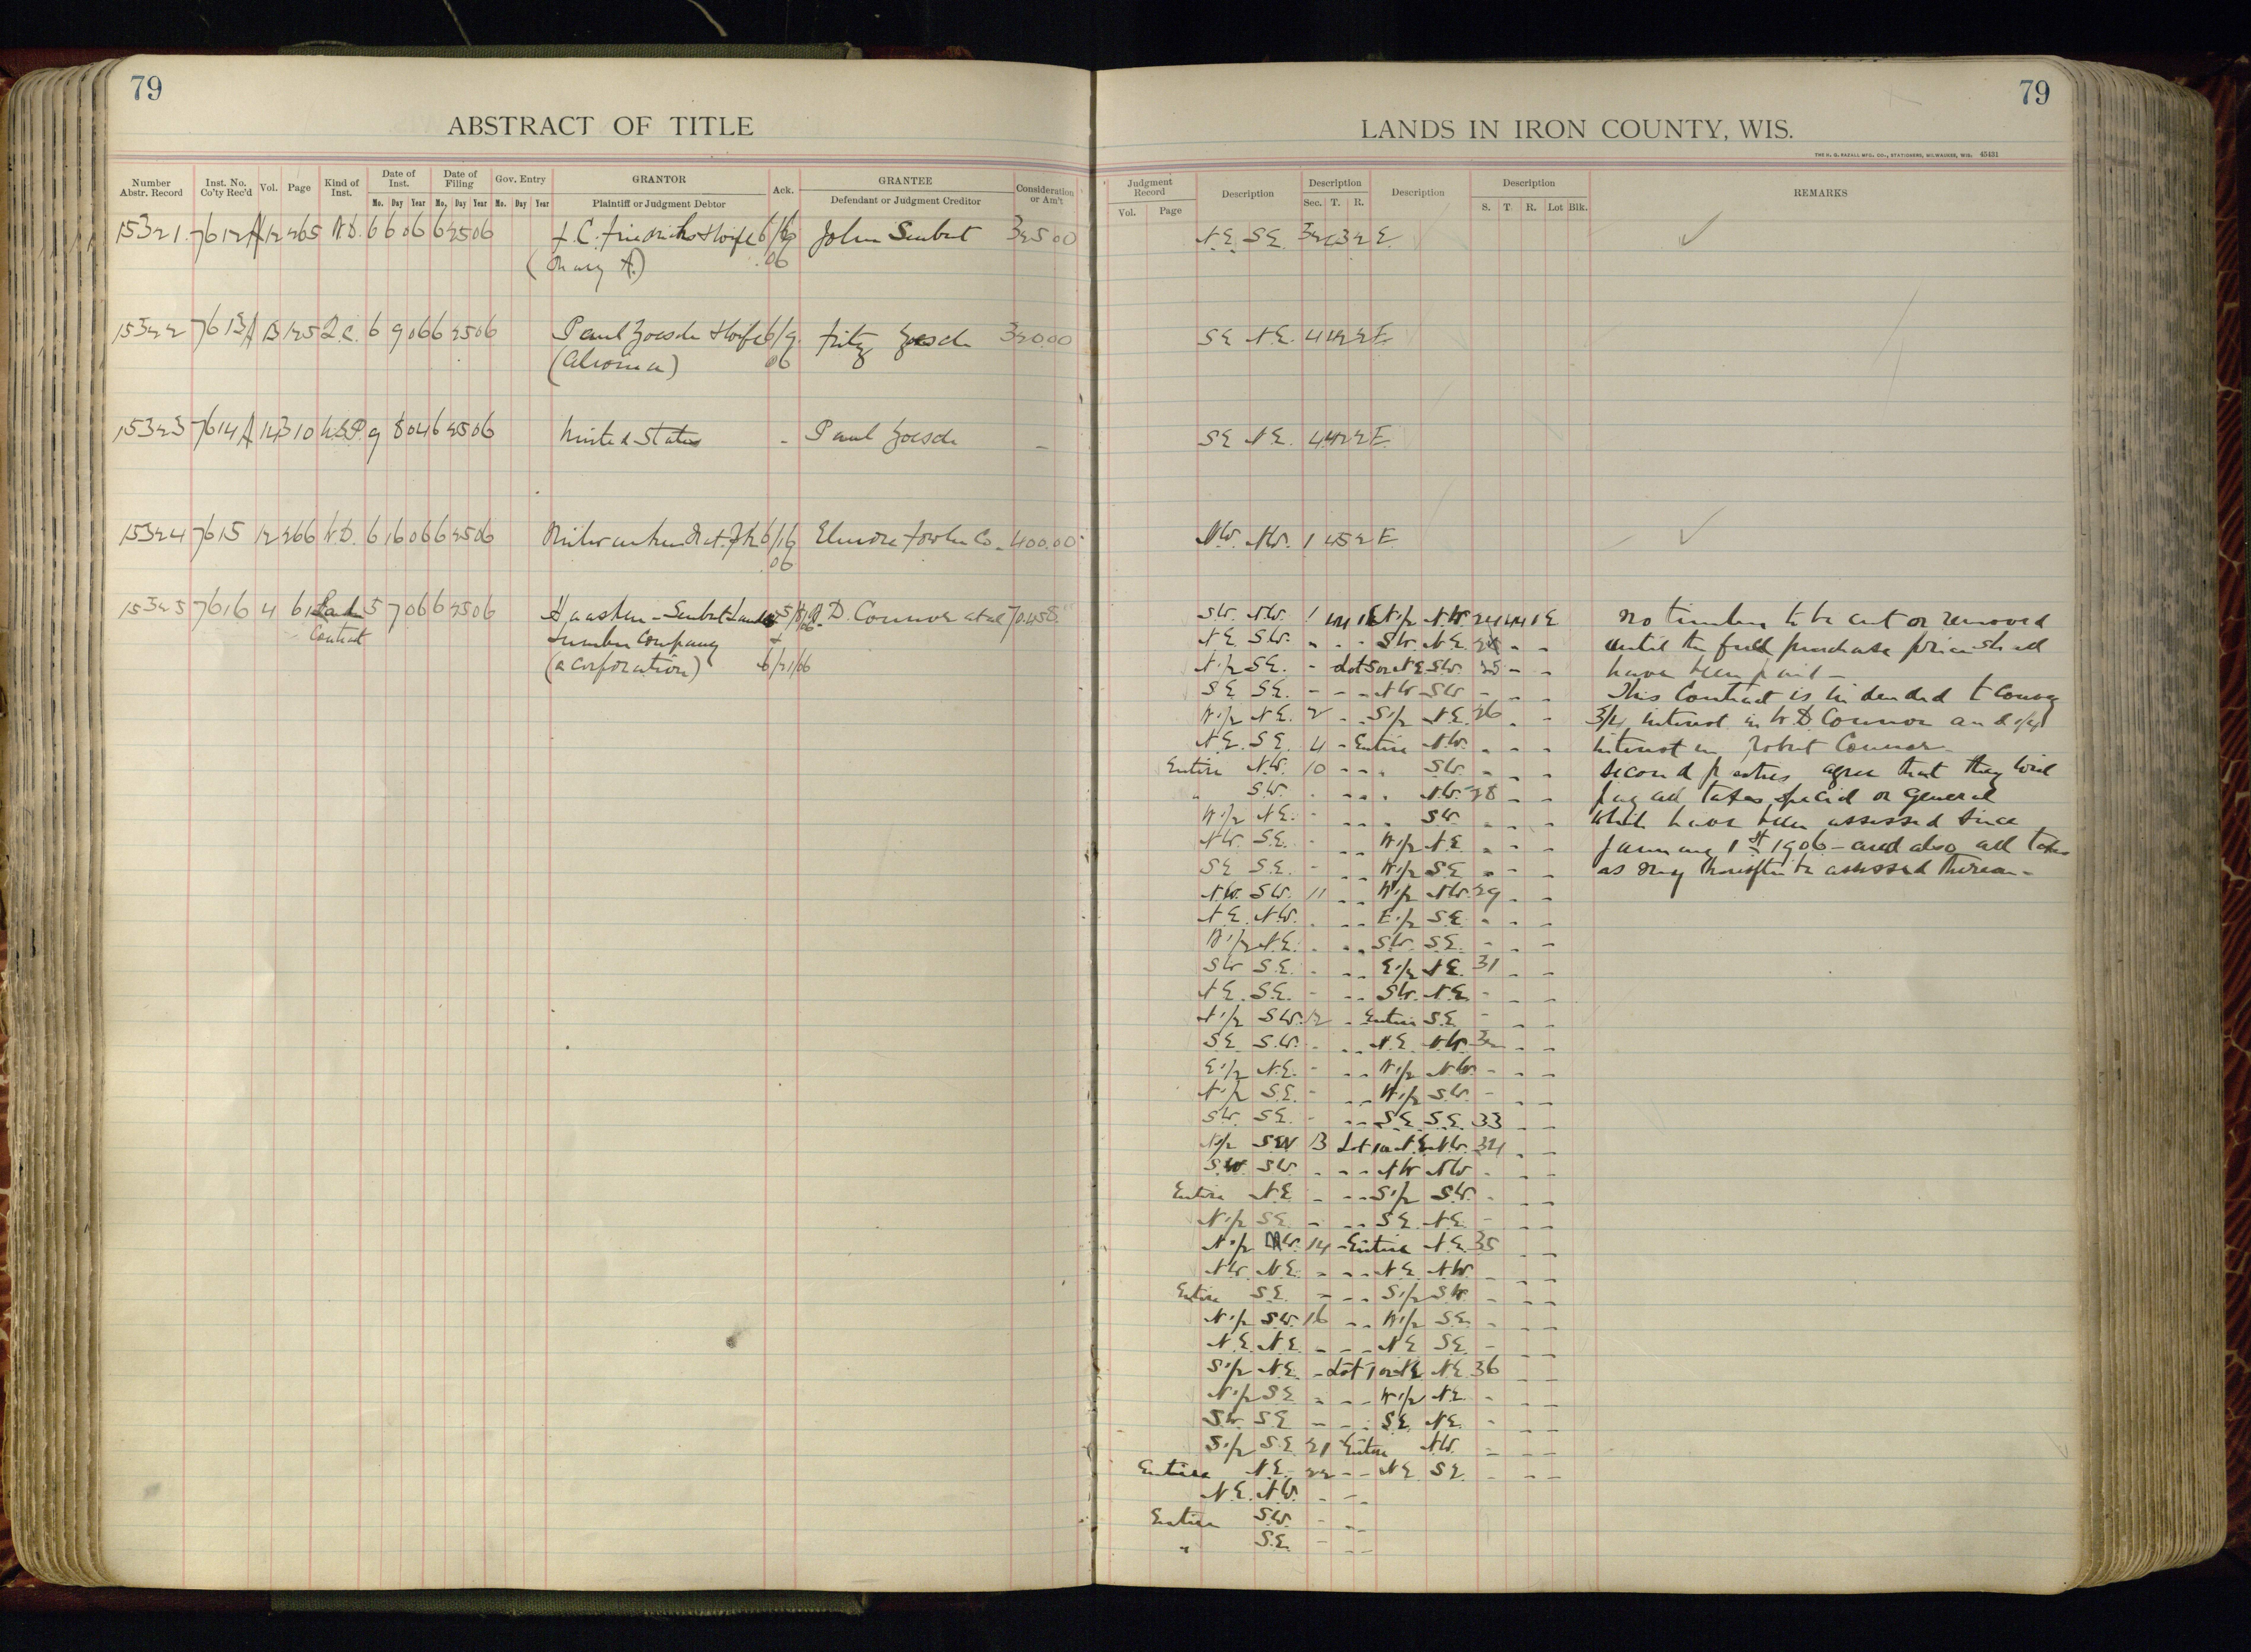 79
ABSTRACT OF TITLE
Number Abstr. Record Inst. No. Co'ty Rec'd Vol. Page Kind of Inst. Date of Inst. Date of Filing Gov. Entry GRANTOR Ack. GRANTEE Consideration or Am't
Mo. Day Year Mo. Day Year Mo. Day Year Plaintiff or Judgment Debtor Defendant or Judgment Creditor
15321 7612A 12 265 W.D. 6 6 06 6 25 06 F. C. Friedrichs & wife 6/ John Seubert 325 00
(Mary A.) 06
15322 7613A 13 125 Q.C. 6 9 06 6 25 06 Paul Zoesch & wife 6/9 Fritz Zoesch 320.00
06
15323 7614A 14 310 U.S.P. 9 8 04 6 25 06 United States - Paul Zoesch -
15324 7615 12 266 W.D. 6 16 06 6 25 06 Milwaukee 6/16 Elmore Fowler Co. 400.00
06
15325 7616 4 61 Land 5 7 06 6 25 06 Seubert Land & 5/8/06 W. D. Connor et al 70.458
Contract Lumber Company &
(a corporation) 6/21/06
79
LANDS IN IRON COUNTY, WIS.
THE H. G. RAZALL MFG. CO., STATIONERS, MILWAUKEE, WIS. 45431
Judgment Record Description Description Description Description REMARKS
Vol. Page Sec. T. R. S. T. R. Lot Blk.
N.E. S.E. 32 43 2 E.
S.E. N.E. 4 42 2 E.
S.E. N.E. 4 42 2 E.
N.W. N.W. 1 45 2 E.
S.W. N.W. 1 44 1 E N1/2 N.W. 24 44 1 E No timber to be cut or removed
N.E. S.W. " - - S.W. N.E. 24 - - until the full purchase price shall
N1/2 S.E. - Lot 5 or N.E. S.W. 25 - - have been paid -
S.E. S.E. - - - N.W. S.W. - - - This Contract is intended to convey
W1/2 N.E. 2 - - S1/2 N.E. 26 - - 3/4 interest in W. D. Connor and 1/4
N.E. S.E. 4 - Entire N.W. " - - interest in Robert Connor -
Entire N.W. 10 - - - S.W. - - - Second parties agree that they will
" S.W. - - - - N.W. 28 - - pay all taxes, special or general
W1/2 N.E. - - - - S.W. - - - which have been assessed since
N.W. S.E. - - - W1/2 N.E. " - - January 1st 1906 - and also all taxes
S.E. S.E. - - - W1/2 S.E. " - - as may thereafter be assessed thereon -
N.W. S.W. 11 - - W1/2 N.W. 29 - -
N.E. N.W. - - - E1/2 S.E. " - -
W1/2 N.E. - - - S.W. S.E. - - -
S.W. S.E. - - - E1/2 N.E. 31 - -
N.E. S.E. - - - S.W. N.E. - - -
N1/2 S.W. 12 - Entire S.E. - - -
S.E. S.W. - - - N.E. N.W. 32 - -
E1/2 N.E. - - - W1/2 N.W. - - -
N1/2 S.E. - - - W1/2 S.W. - - -
S.W. S.E. - - - S.E. S.E. 33 - -
N1/2 S.W. 13 Lot 1 or N.E. N.W. 34 - -
S.W. S.W. - - - N.W. N.W. - - -
Entire N.E. - - - S1/2 S.W. - - -
N1/2 S.E. - - - S.E. N.E. - - -
N1/2 N.W. 14 - Entire N.E. 35 - -
N.W. N.E. - - - N.E. N.W. - - -
Entire S.E. - - - S1/2 S.W. - - -
N1/2 S.W. 16 - - W1/2 S.E. - - -
N.E. N.E. - - - N.E. S.E. - - -
S1/2 N.E. - Lot 1 or N.E. N.E. 36 - -
N1/2 S.E. - - - W1/2 N.E. - - -
S.W. S.E. - - - S.E. N.E. - - -
S1/2 S.E. 21 Entire N.W. - - -
Entire N.E. 22 - - N.E. S.E. - - -
N.E. N.W. - - -
Entire S.W. - - -
" S.E. - - -